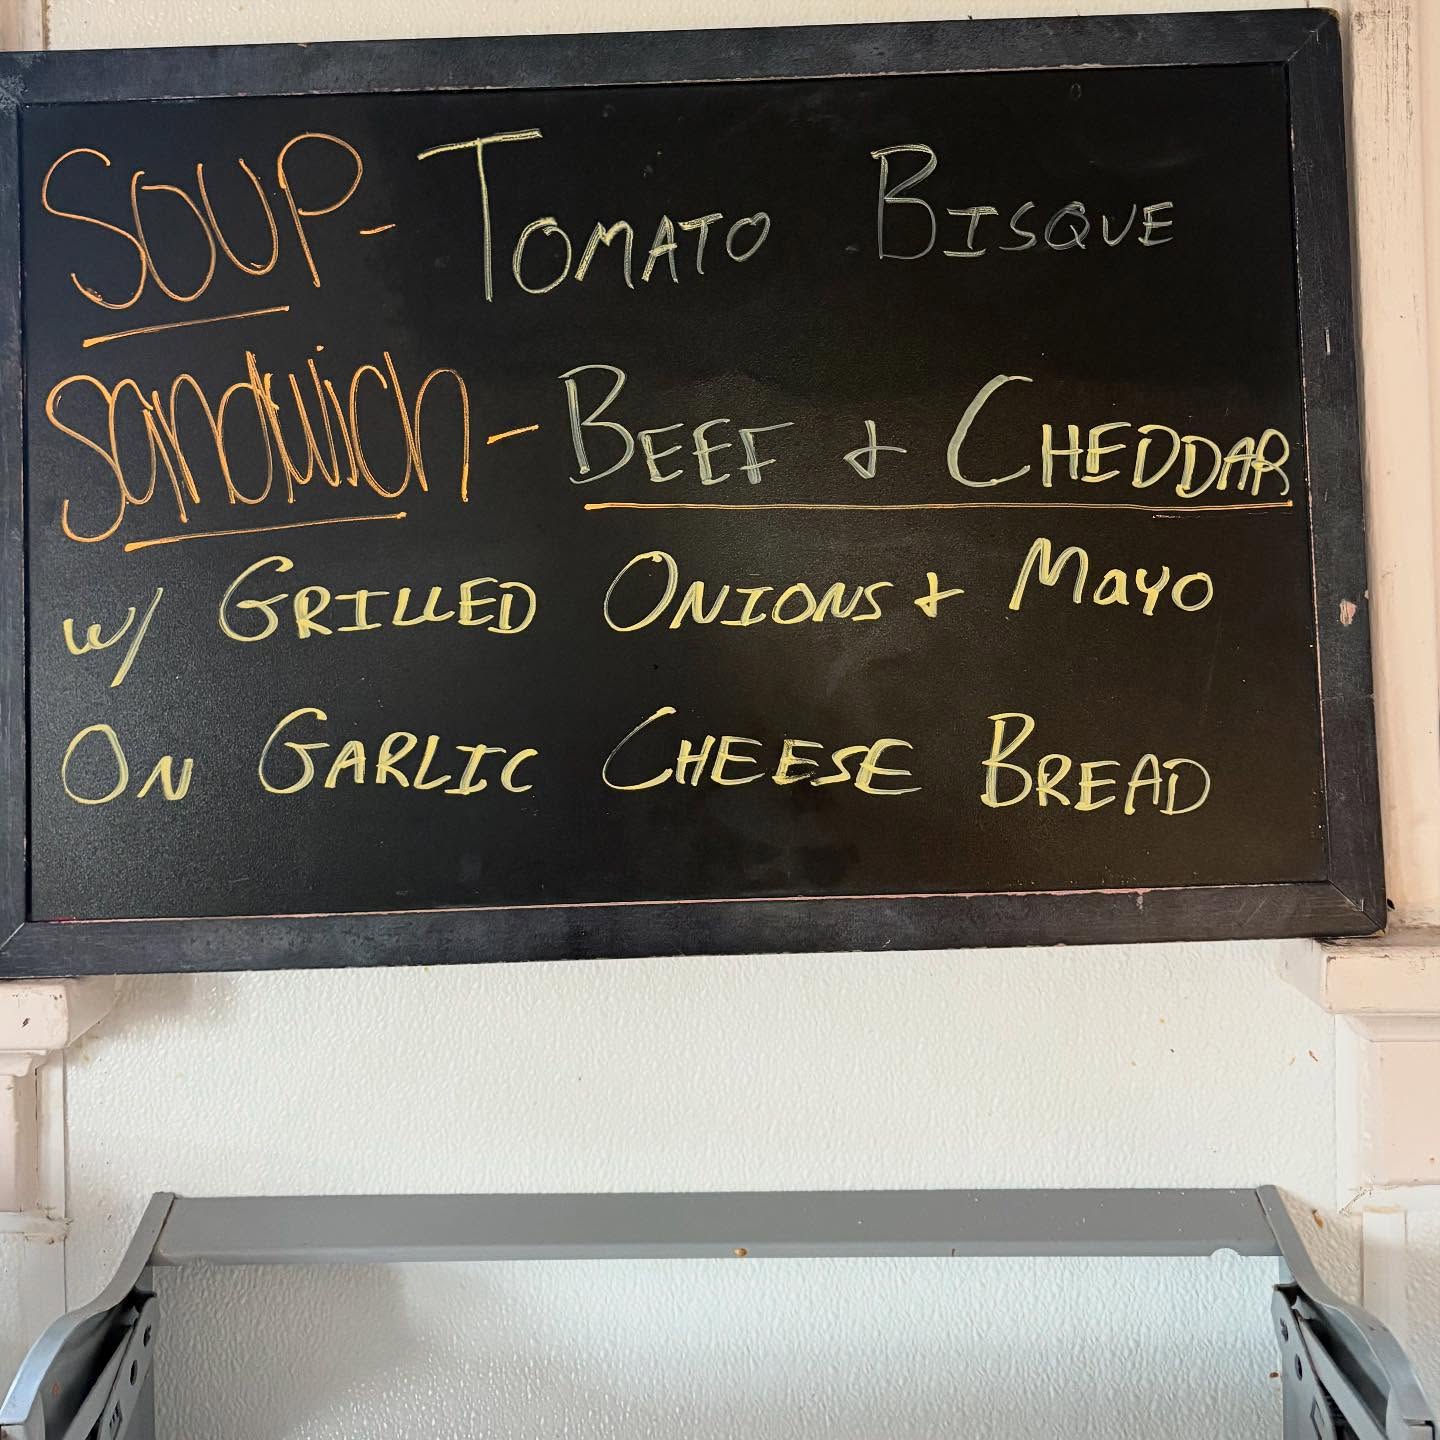 SOUP- TOMATO BISQUE
Sandwich - BEEF & CHEDDAR
w/ GRILLED ONIONS & MAYO
ON GARLIC CHEESE BREAD